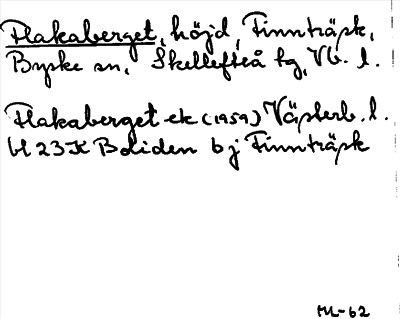 Flakaberget, höjd, Finnträsk,
Byske sn, Skellefteå tg, Vb. l.
Flakaberget ek (1959) Västerb. l.
bl 23K Boliden b j Finnträsk
ML-62